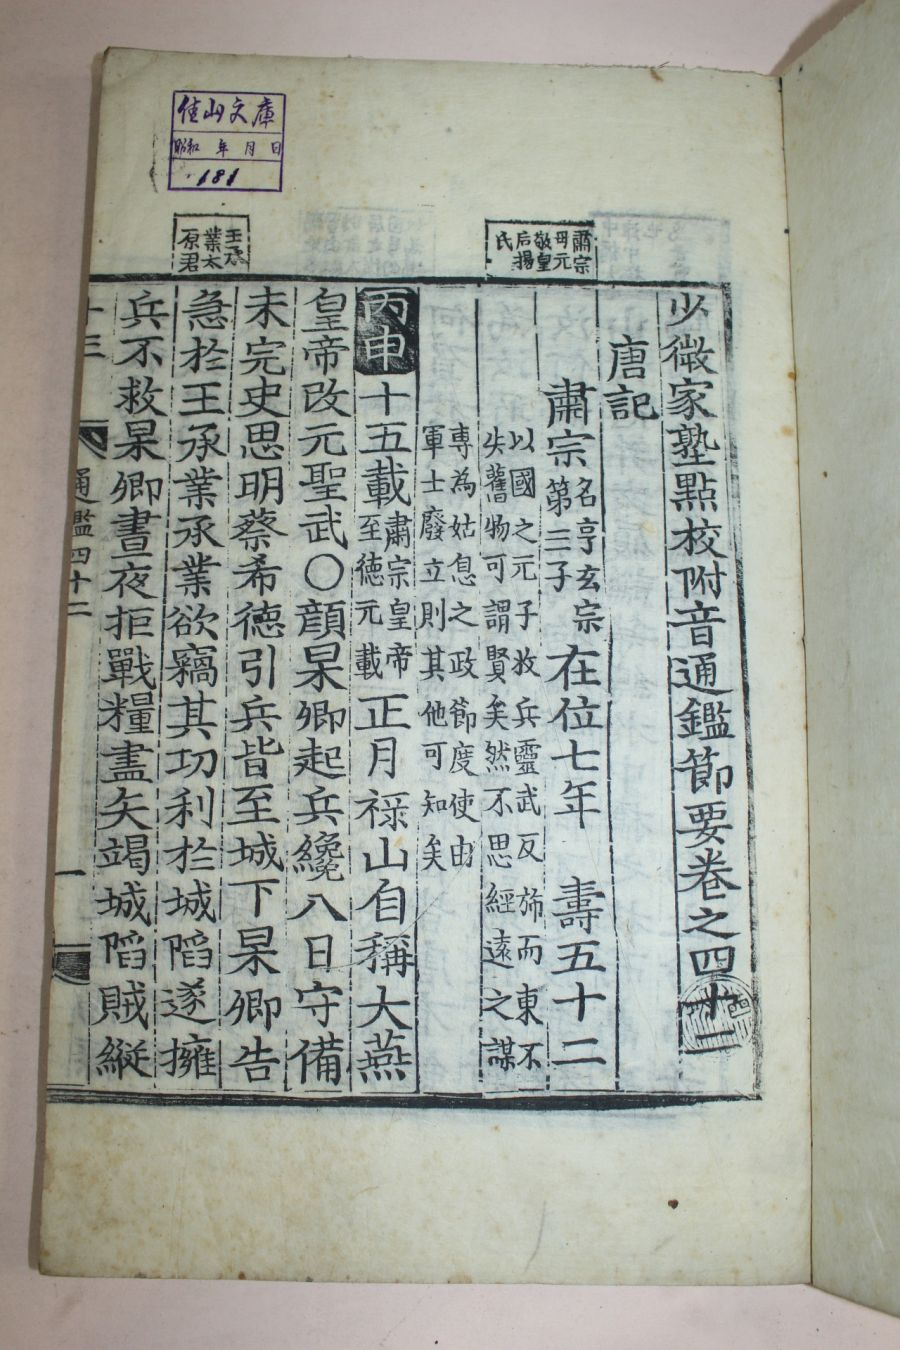 佳山文庫
昭和 年 月 日
181
肅宗
母元
敬皇
后揚
氏
業太
原君
少微家塾點校附音通鑑節要卷之四十二
唐記
肅宗名亨玄宗第三子在位七年 壽五十二
以國之元子救兵靈武反斾而東不
失舊物可謂賢矣然不思經遠之謀
專為姑息之政節度使由
軍士廢立則其他可知矣
丙申十五載肅宗皇帝至德元載正月祿山自稱大燕
皇帝改元聖武〇顔杲卿起兵纔八日守備
未完史思明蔡希德引兵皆至城下杲卿告
急於王承業承業欲竊其功利於城陷遂擁
兵不救杲卿晝夜拒戰糧盡矢竭城陷賊縱
通鑑四十二
一